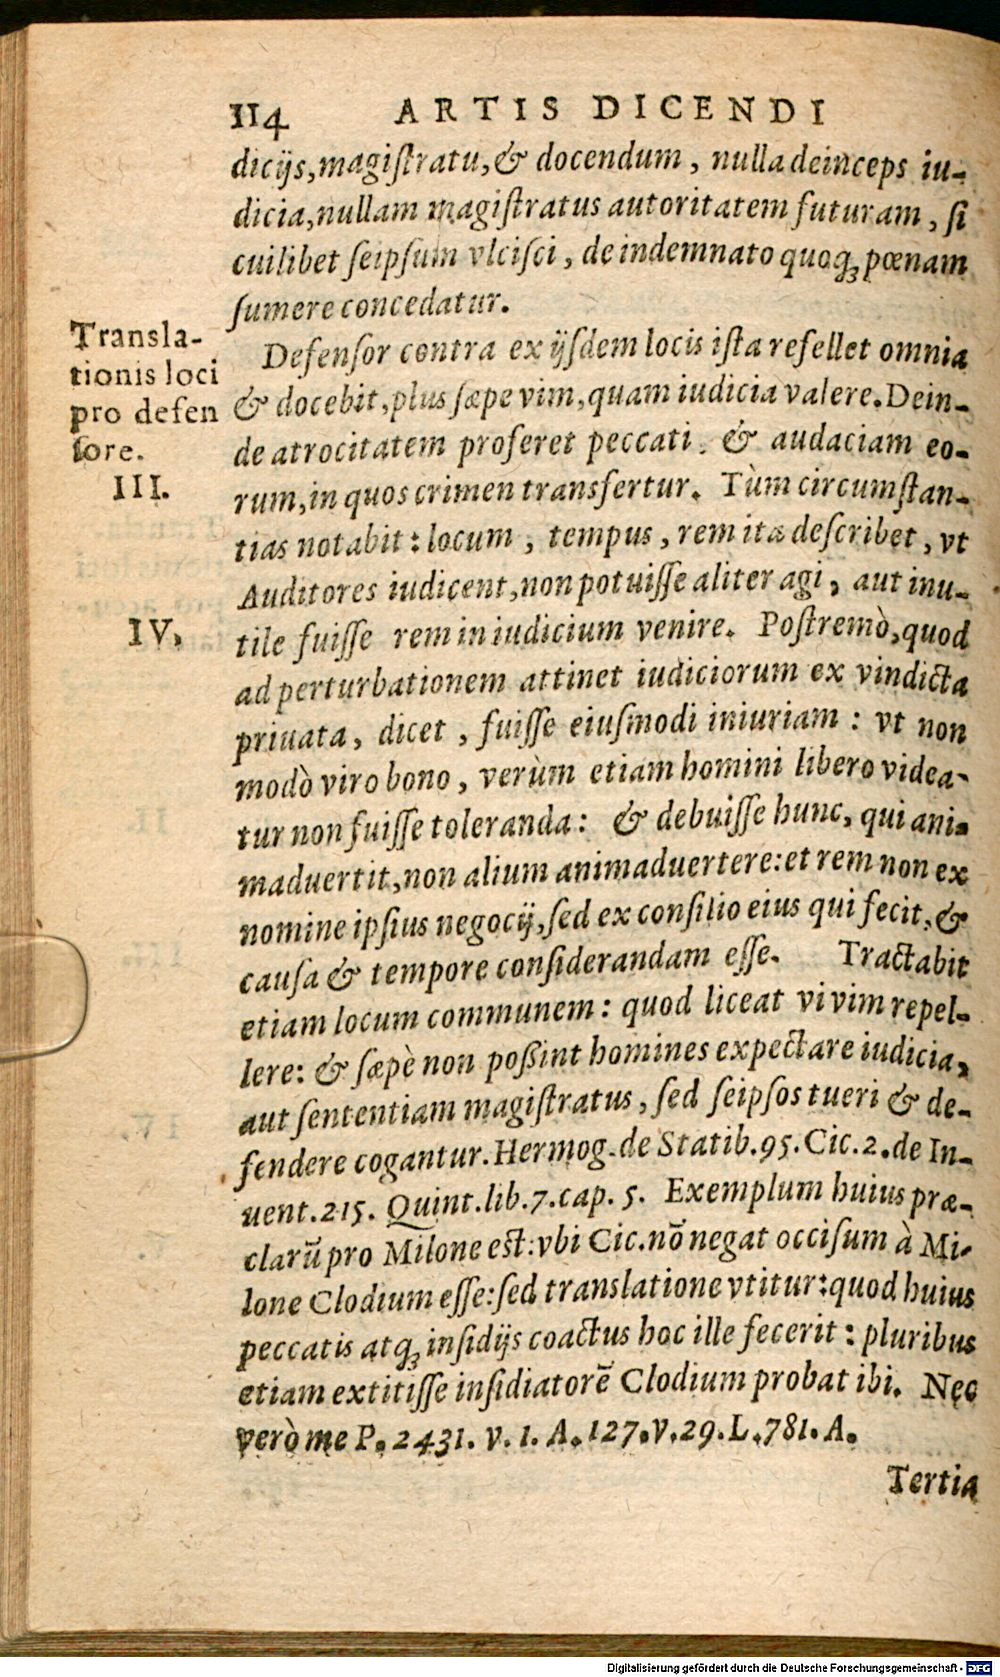 114 ARTIS DICENDI
dicijs, magiſtratu, & docendum, nulla deinceps iu-
dicia, nullam magiſtratus autoritatem futuram, ſi
cuilibet ſeipſum vlciſci, de indemnato quoqꝫ pœnam
ſumere concedatur.
Transla-
tionis loci
pro defen
ſore.
Defenſor contra ex ijſdem locis iſta refellet omnia
& docebit, plus ſæpe vim, quam iudicia valere. Dein-
de atrocitatem proferet peccati. & audaciam eo-
III.
rum, in quos crimen transfertur. Tùm circumſtan-
tias notabit: locum, tempus, rem ita deſcribet, vt
Auditores iudicent, non potuiſſe aliter agi, aut inu-
IV.
tile fuiſſe rem in iudicium venire. Poſtremò, quod
ad perturbationem attinet iudiciorum ex vindicta
priuata, dicet, fuiſſe eiuſmodi iniuriam: vt non
modò viro bono, verùm etiam homini libero videa-
tur non fuiſſe toleranda: & debuiſſe hunc, qui ani-
maduertit, non alium animaduertere: et rem non ex
nomine ipſius negocij, ſed ex conſilio eius qui fecit, &
cauſa & tempore conſiderandam eſſe. Tractabit
etiam locum communem: quod liceat vi vim repel-
lere: & ſæpè non poßint homines expectare iudicia,
aut ſententiam magiſtratus, ſed ſeipſos tueri & de-
fendere cogantur. Hermog. de Statib. 95. Cic. 2. de In-
uent. 215. Quint. lib. 7. cap. 5. Exemplum huius præ-
clarū pro Milone eſt: vbi Cic. nō negat occiſum à Mi-
lone Clodium eſſe: ſed translatione vtitur: quod huius
peccatis atqꝫ inſidijs coactus hoc ille fecerit: pluribus
etiam extitiſſe inſidiatorē Clodium probat ibi. Nec
verò me P. 2431. v. 1. A. 127. V. 29. L. 781. A.
Tertia
Digitalisierung gefördert durch die Deutsche Forschungsgemeinschaft - DFG